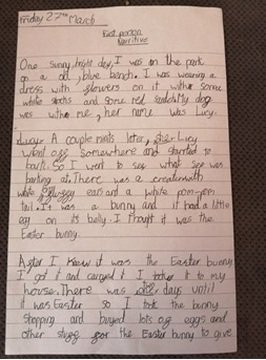 Friday 27th March
First person
Narritive
One sunny, bright day, I was on the park
on a old, blue bench. I was wearing a
dress with flowers on it with some
white socks and some red My dog
was with me, her name was Lucy.
A couple minits later, Lucy
went off somewhere and started to
bark. So I went to see what she was
barking at. There was a creater with
white fluffy ears and a white pom-pom
tail. It was a bunny and it had a little
egg on its belly. I thought it was the
Easter bunny.
After I knew it was the Easter bunny
I got it and carryed it I it to my
house. There was days until
it was Easter so I took the bunny
shopping and buyed lots of eggs and
other stuff for the Easter bunny to give